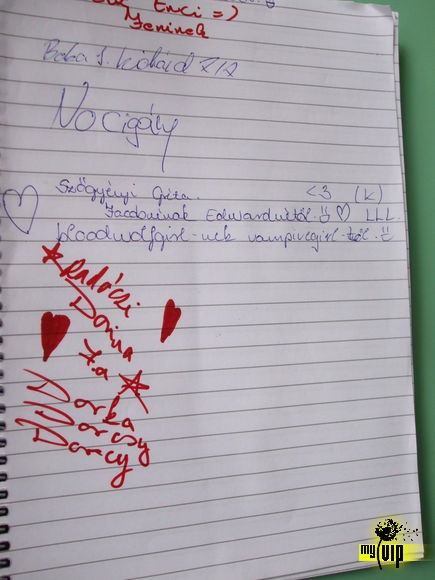 Enci =)
Jeminek
Baka S. Kiólád 7.a
No cigány
Szőgyényi Gréta. <3 (k)
Jacobnak Edwardtól. :) LLL
bloodwolfgirl-nek vampiregirl-től. :)
Radóczi
Dorina
7.a
Dorka
Dorcsy
Dorcy
my VIP